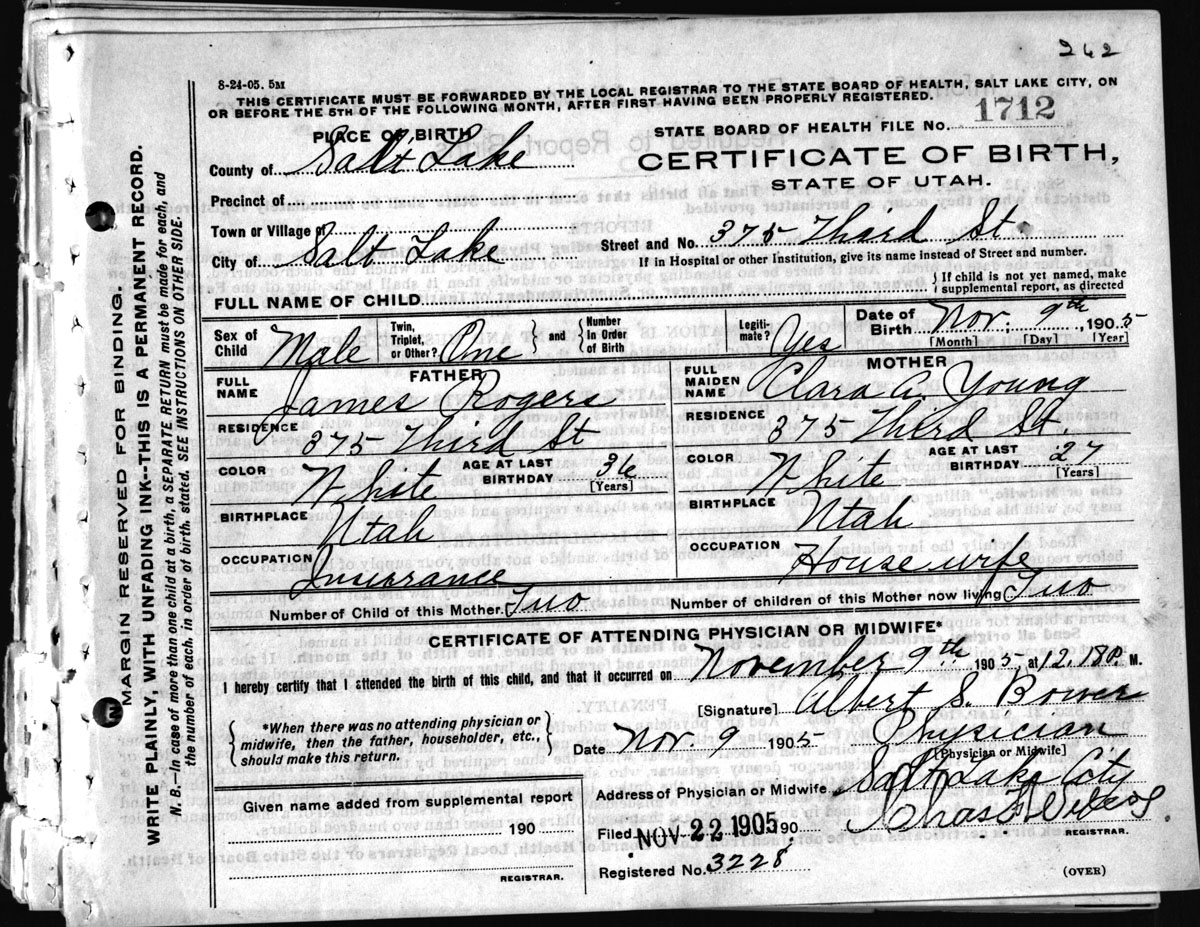 262
8-24-05. 5M
THIS CERTIFICATE MUST BE FORWARDED BY THE LOCAL REGISTRAR TO THE STATE BOARD OF HEALTH, SALT LAKE CITY, ON
OR BEFORE THE 5TH OF THE FOLLOWING MONTH, AFTER FIRST HAVING BEEN PROPERLY REGISTERED.
STATE BOARD OF HEALTH FILE NO. 1712
CERTIFICATE OF BIRTH,
STATE OF UTAH.
PLACE OF BIRTH
County of Salt Lake
Precinct of
Town or Village of
City of Salt Lake
Street and No. 375 Third St.
If in Hospital or other Institution, give its name instead of Street and number.
FULL NAME OF CHILD
If child is not yet named, make
supplemental report, as directed
Sex of Child Male
Twin, Triplet, or Other? One
and
Number In Order of Birth
Legiti-mate? Yes
Date of Birth Nov. 9th, 1905
[Month] [Day] [Year]
FATHER
FULL NAME James Rogers
RESIDENCE 375 Third St
COLOR White
AGE AT LAST BIRTHDAY 36
[Years]
BIRTHPLACE Utah
OCCUPATION Insurance
MOTHER
FULL MAIDEN NAME Clara A. Young
RESIDENCE 375 Third St.
COLOR White
AGE AT LAST BIRTHDAY 27
[Years]
BIRTHPLACE Utah
OCCUPATION House wife
Number of Child of this Mother. Two
Number of children of this Mother now living Two
CERTIFICATE OF ATTENDING PHYSICIAN OR MIDWIFE*
I hereby certify that I attended the birth of this child, and that it occurred on November 9th 1905, at 12.18 P. M.
*When there was no attending physician or
midwife, then the father, householder, etc.,
should make this return.
[Signature] Albert S. Bower
Date Nov. 9 1905
Physician
[Physician or Midwife]
Address of Physician or Midwife Salt Lake City
Given name added from supplemental report
190
REGISTRAR.
Filed NOV 22 1905 190
Chas F Wilcox.
REGISTRAR.
Registered No. 3228
(OVER)
MARGIN RESERVED FOR BINDING.
WRITE PLAINLY, WITH UNFADING INK--THIS IS A PERMANENT RECORD.
N. B.—In case of more than one child at a birth, a SEPARATE RETURN must be made for each, and
the number of each, in order of birth, stated. SEE INSTRUCTIONS ON OTHER SIDE.